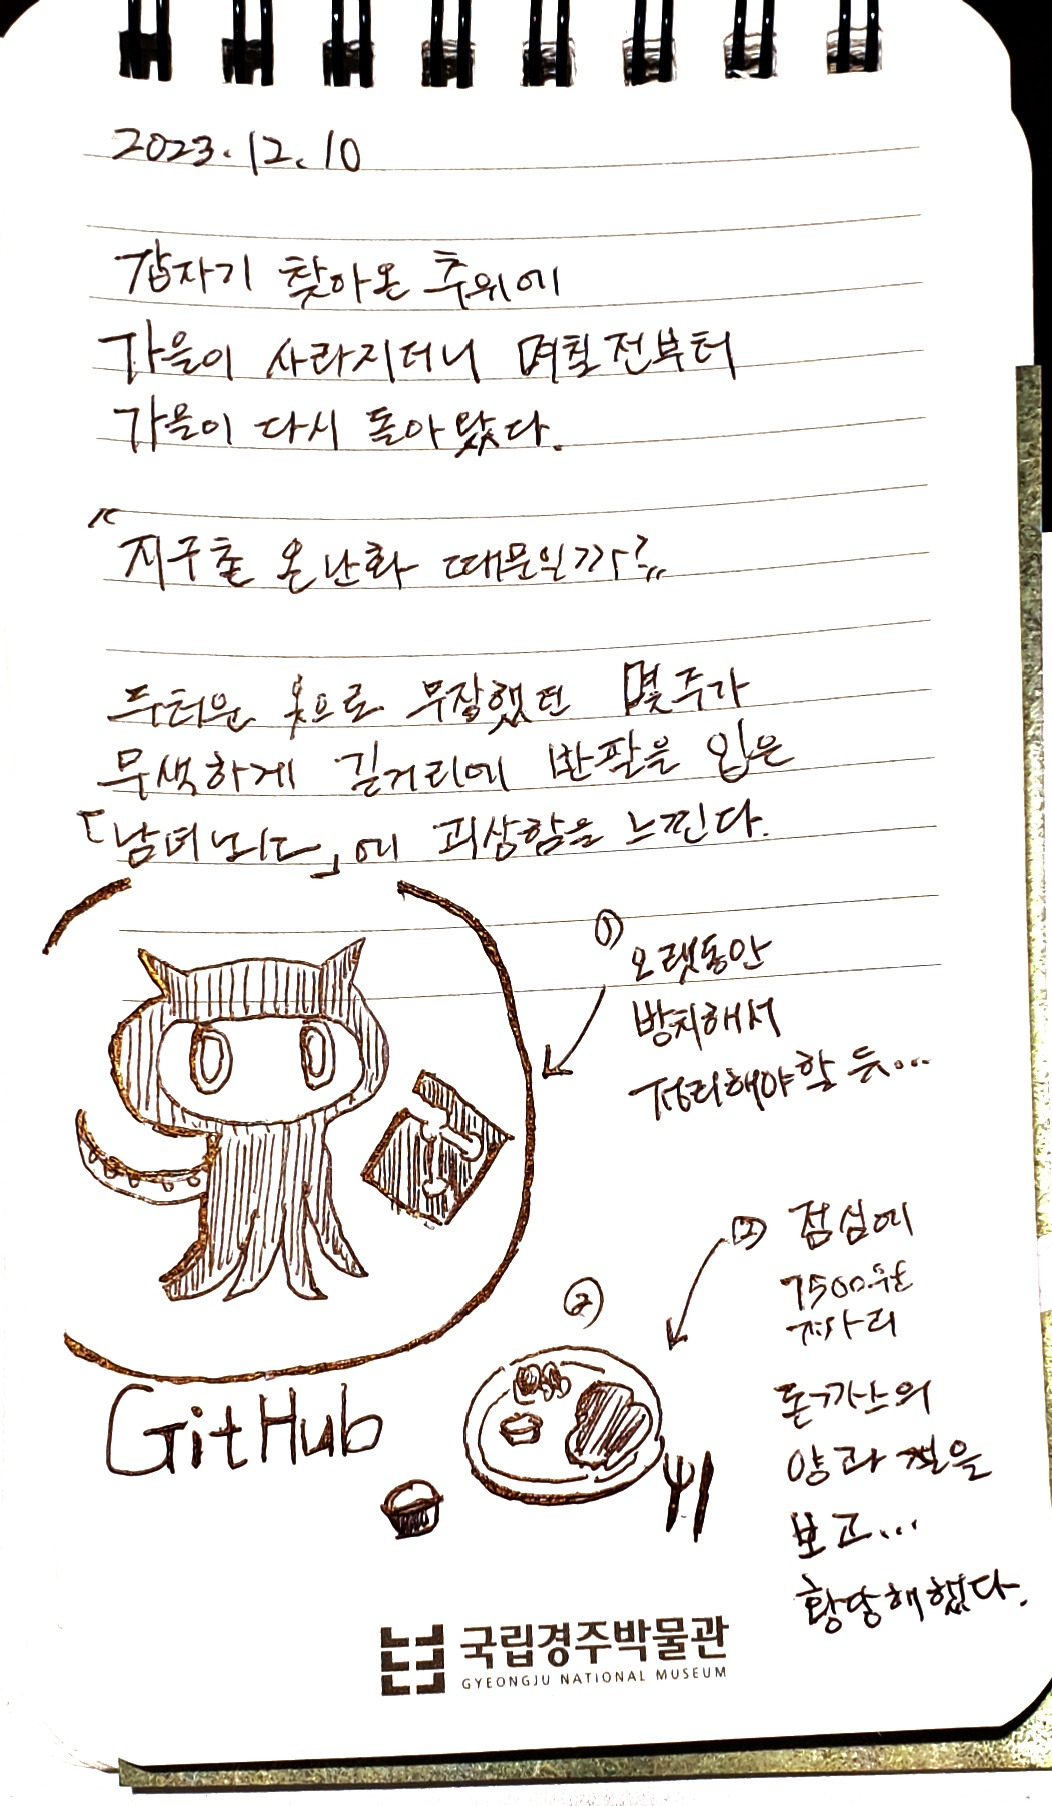 2023.12.10
갑자기 찾아온 추위에
가을이 사라지더니 며칠전부터
가을이 다시 돌아왔다.
"지구촌 온난화 때문일까?"
두터운 옷으로 무장했던 몇주가
무색하게 길거리에 반팔을 입은
「남녀 」에 괴상함을 느낀다.
①
오랫동안
방치해서
정리해야할 듯...
② 점심에
7500원
짜리
돈까스의
양과 질을
보고...
황당해했다.
②
GitHub
국립경주박물관
GYEONGJU NATIONAL MUSEUM